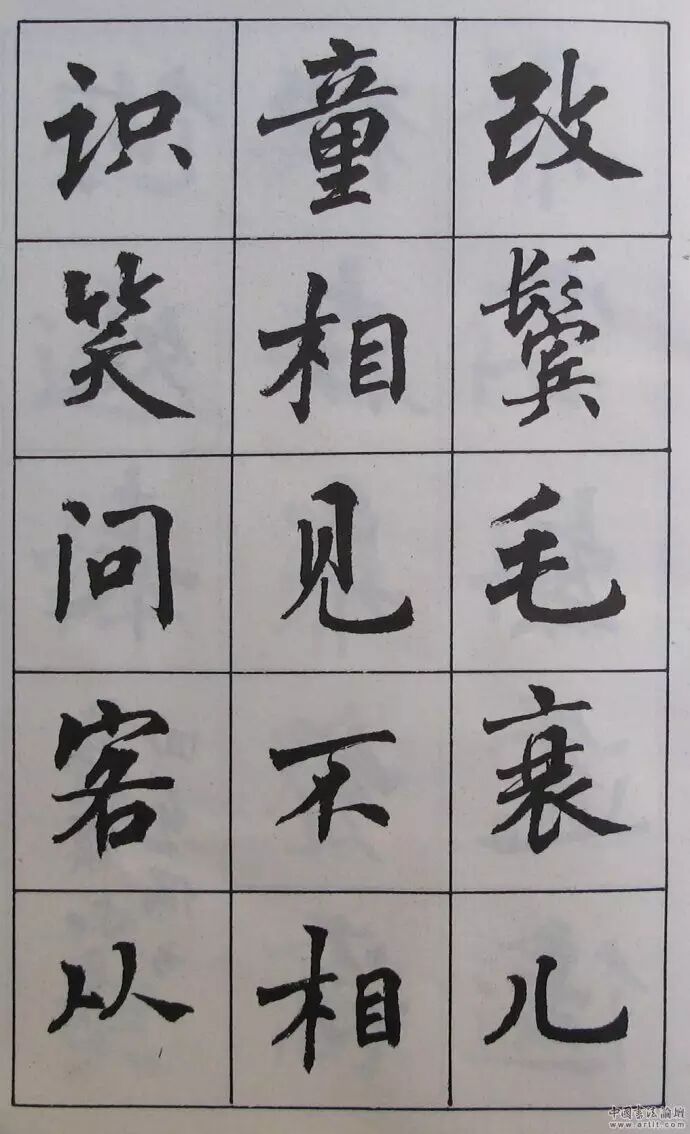 改鬓毛衰儿
童相见不相
识笑问客从
中国书法论坛
www.artit.com